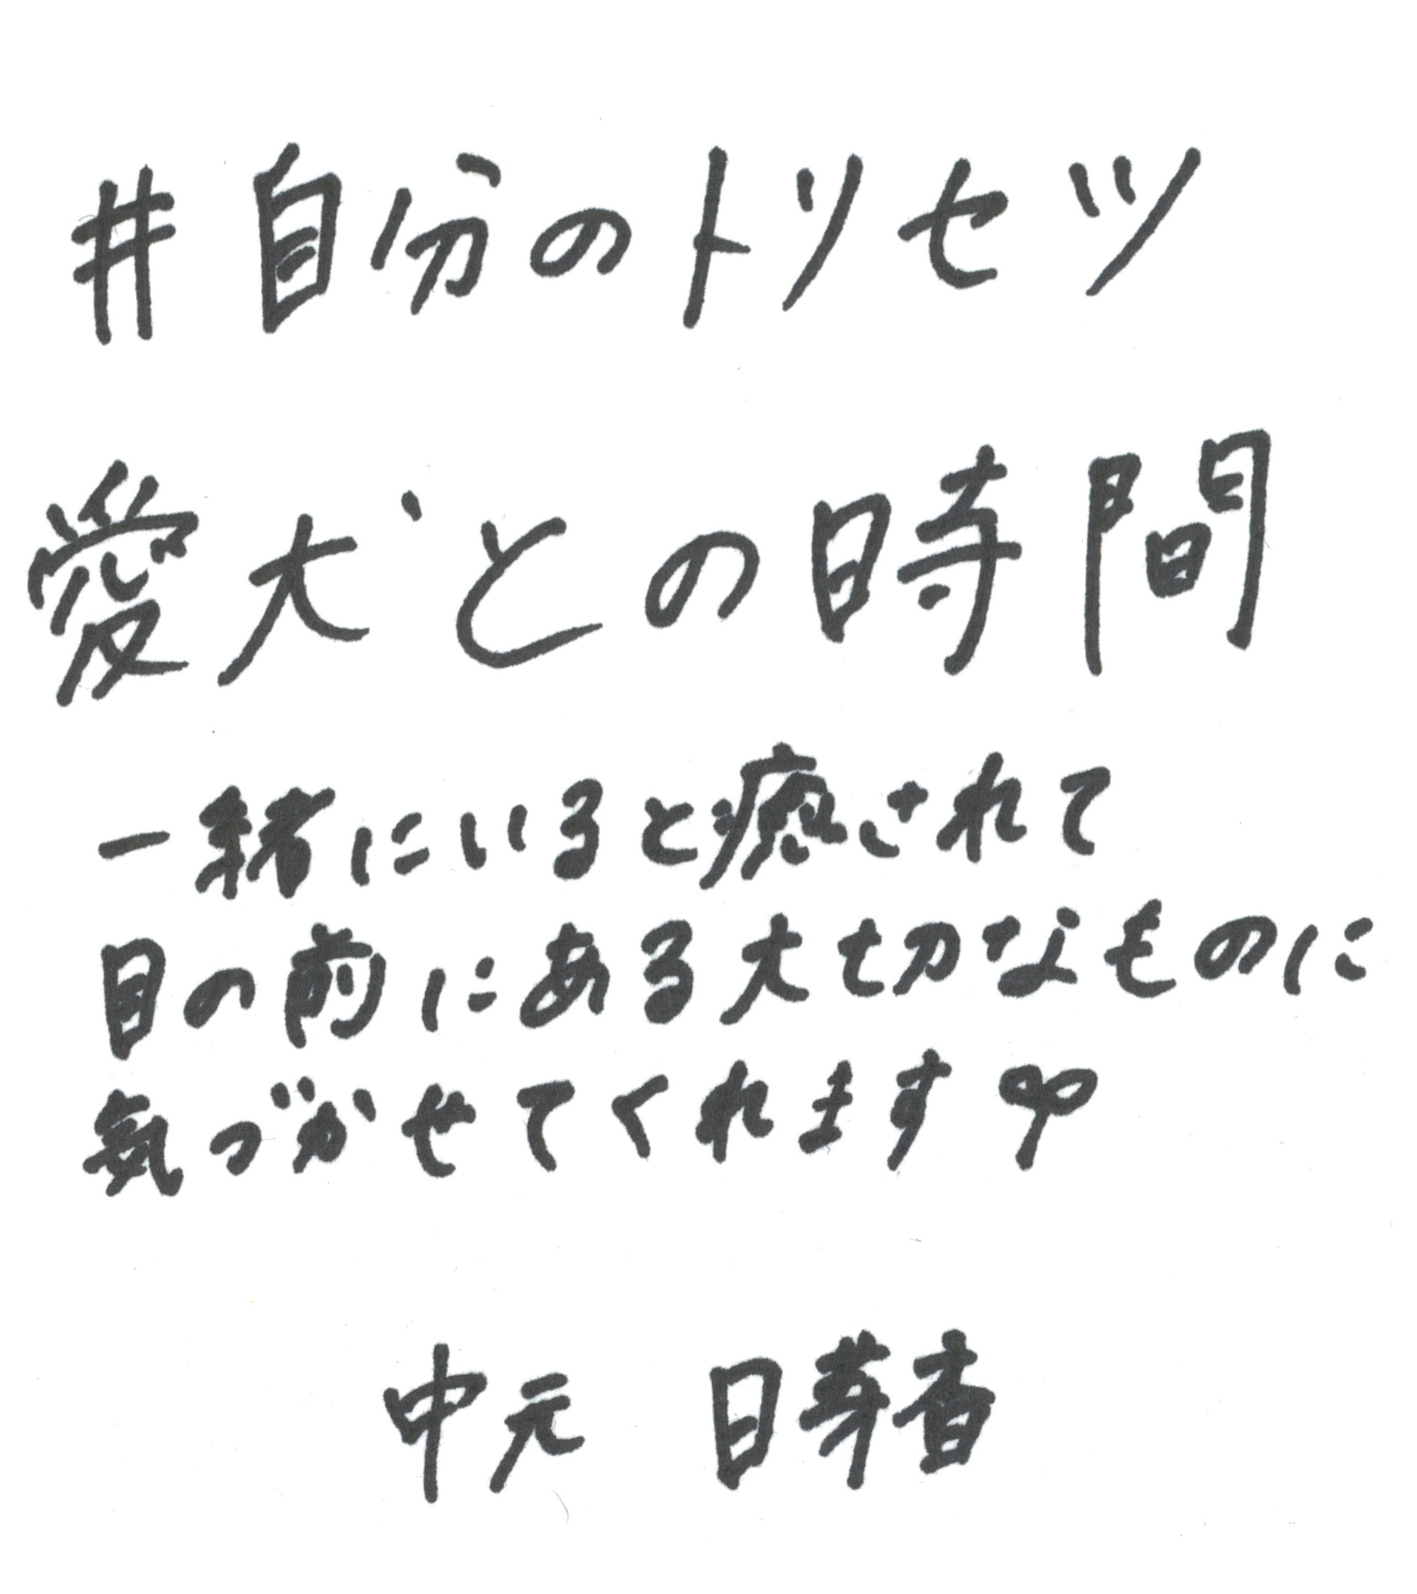 #自分のトリセツ
愛犬との時間
一緒にいると癒されて
目の前にある大切なものに
気づかせてくれます♡
中元 日芽香